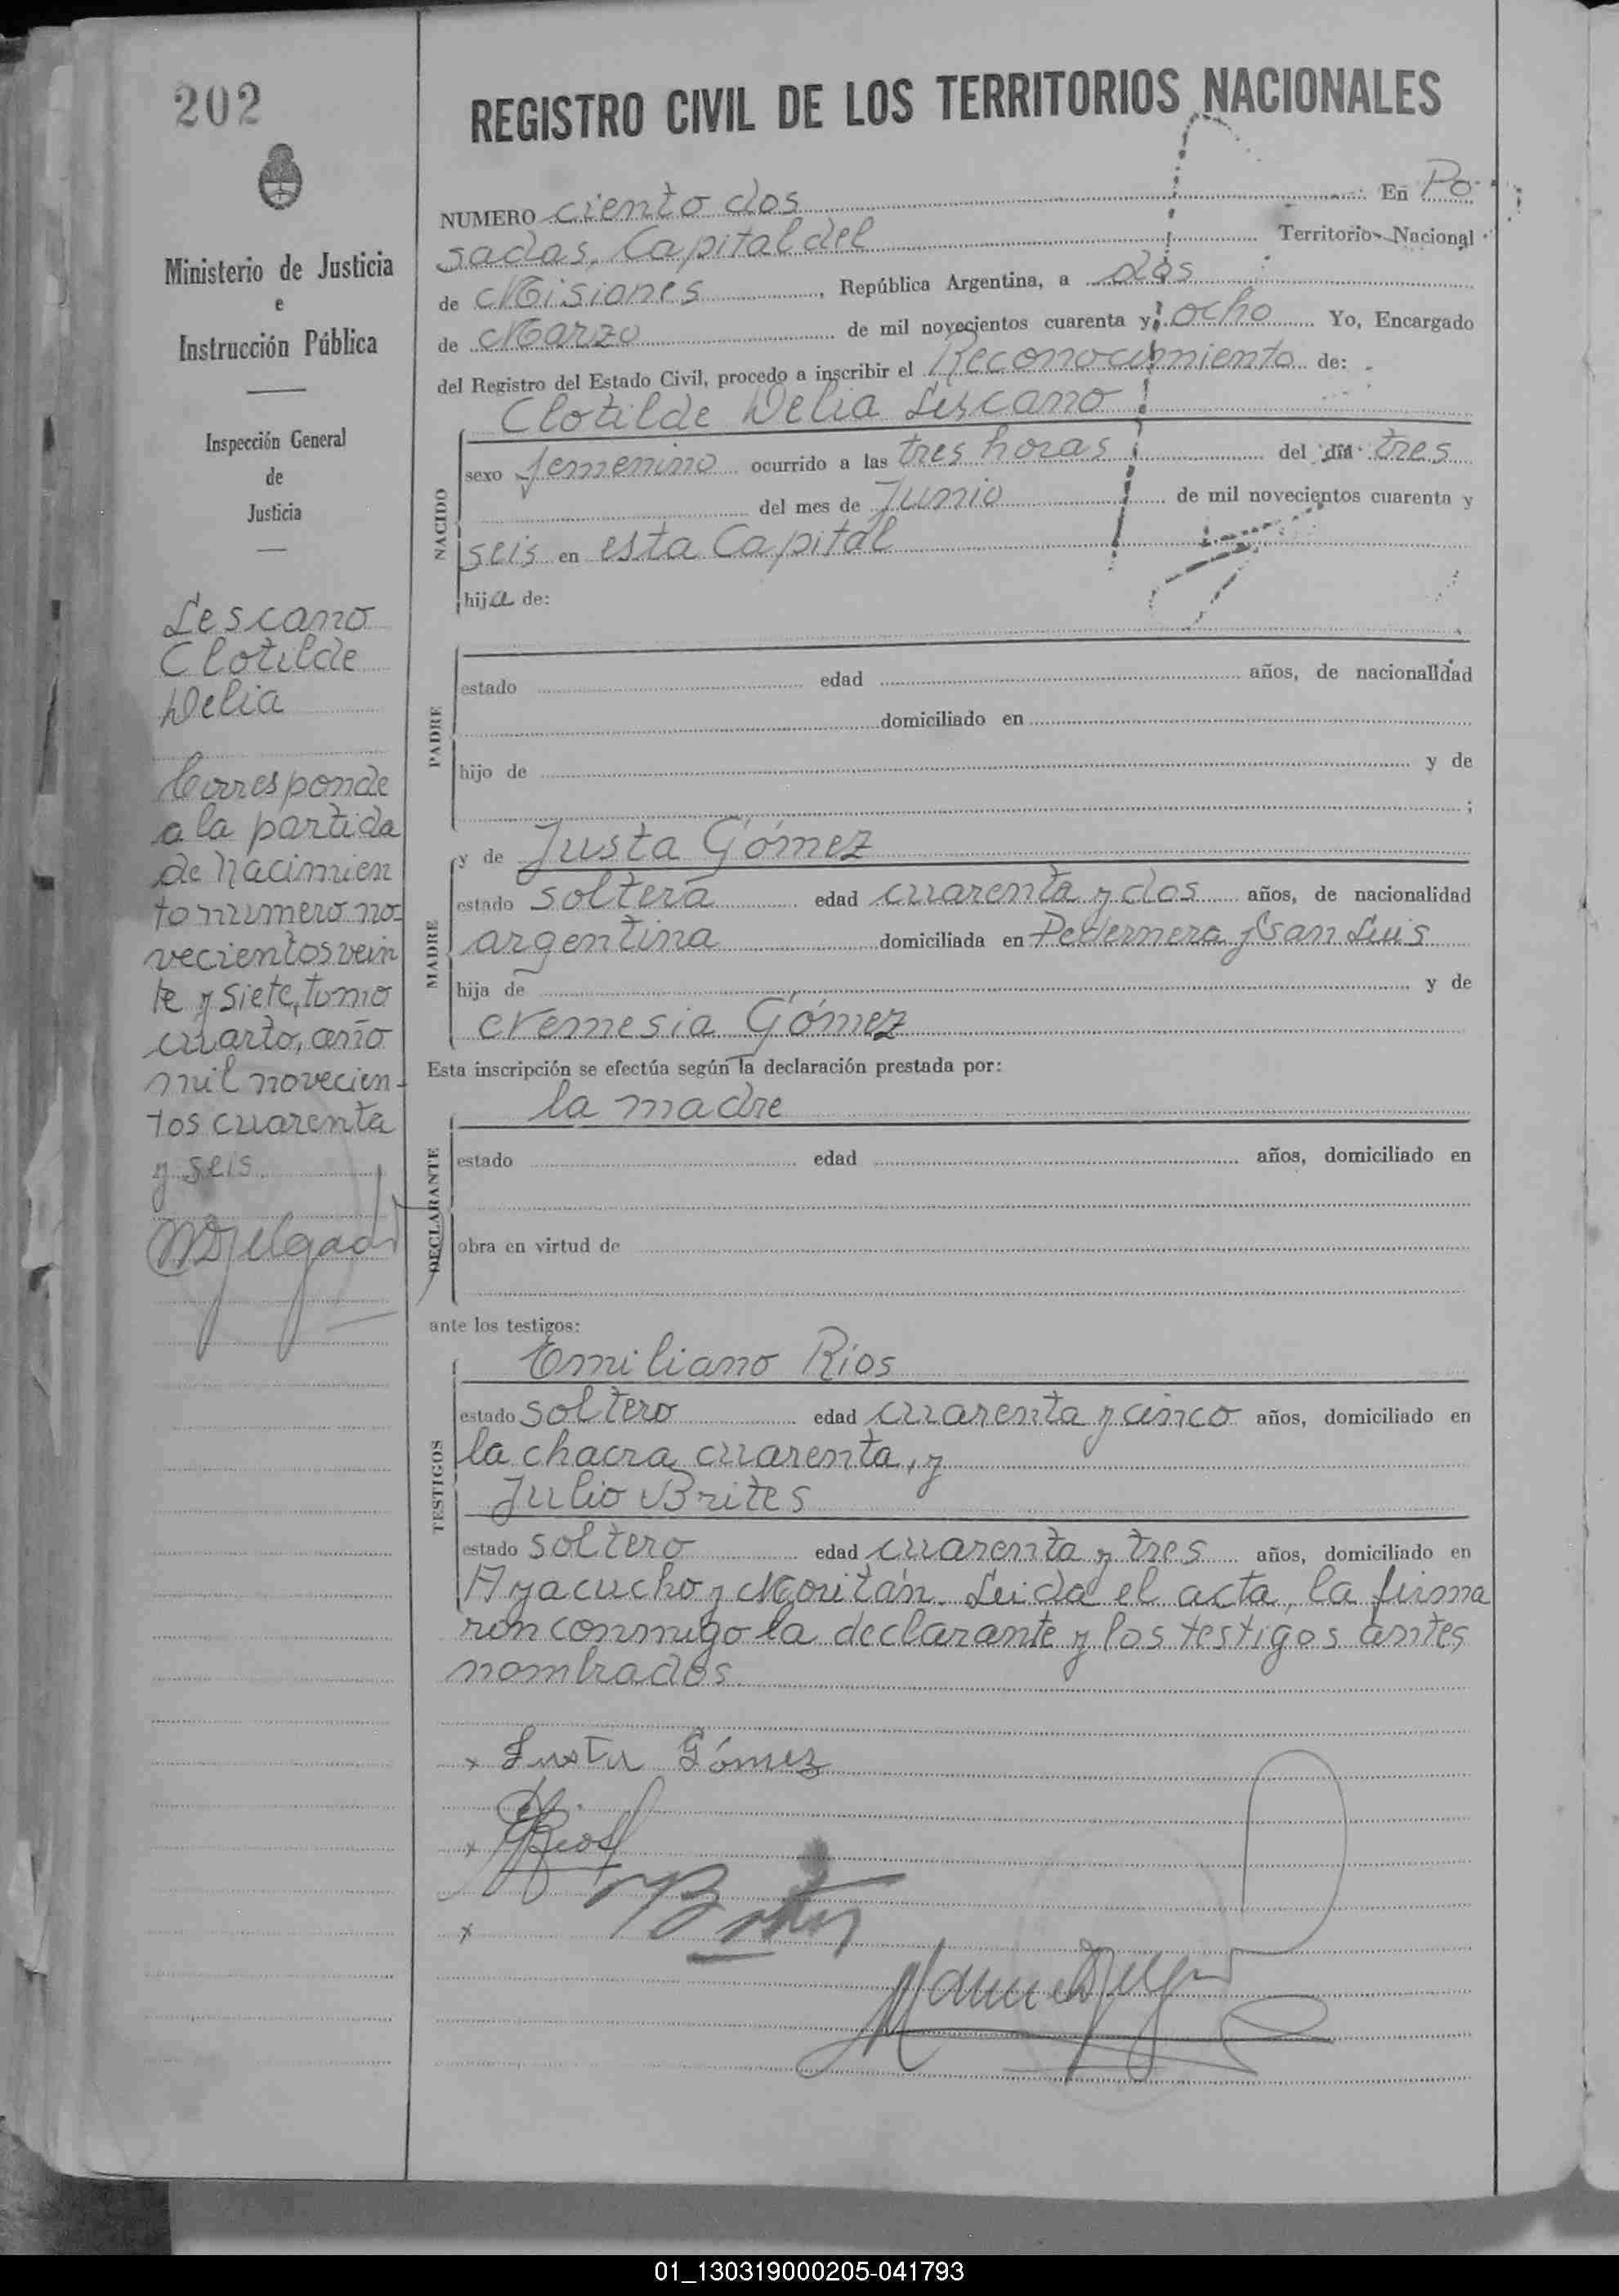 202
Ministerio de Justicia
e
Instrucción Pública
Inspección General
de
Justicia
Lescano
Clotilde
Delia
Corresponde
a la partida
de nacimien
to número no-
vecientos vein
te y siete, tomo
cuarto, año
mil novecien-
tos cuarenta
y seis.
MDelgado
REGISTRO CIVIL DE LOS TERRITORIOS NACIONALES
NUMERO ciento dos En Po-
sadas, Capital del Territorio Nacional
de Misiones, República Argentina, a dos
de Marzo de mil novecientos cuarenta y ocho Yo, Encargado
del Registro del Estado Civil, procedo a inscribir el Reconocimiento de:
Clotilde Delia Lescano
NACIDO
sexo femenino ocurrido a las tres horas del día tres
del mes de Junio de mil novecientos cuarenta y
seis en esta Capital
hija de:
PADRE
estado edad años, de nacionalidad
domiciliado en
hijo de y de
;
MADRE
y de Justa Gómez
estado soltera edad cuarenta y dos años, de nacionalidad
argentina domiciliada en Pedernera y San Luis
hija de y de
Nemesia Gómez
Esta inscripción se efectúa según la declaración prestada por:
la madre
DECLARANTE
estado edad años, domiciliado en
obra en virtud de
ante los testigos:
TESTIGOS
Emiliano Ríos
estado soltero edad cuarenta y cinco años, domiciliado en
la chacra cuarenta, y
Julio Brites
estado soltero edad cuarenta y tres años, domiciliado en
Ayacucho y Moritán. Leida el acta, la firma
ron conmigo la declarante y los testigos antes
nombrados.
x Justa Gómez
x Rios
x Brites
Manuel Delgado
01_130319000205-041793